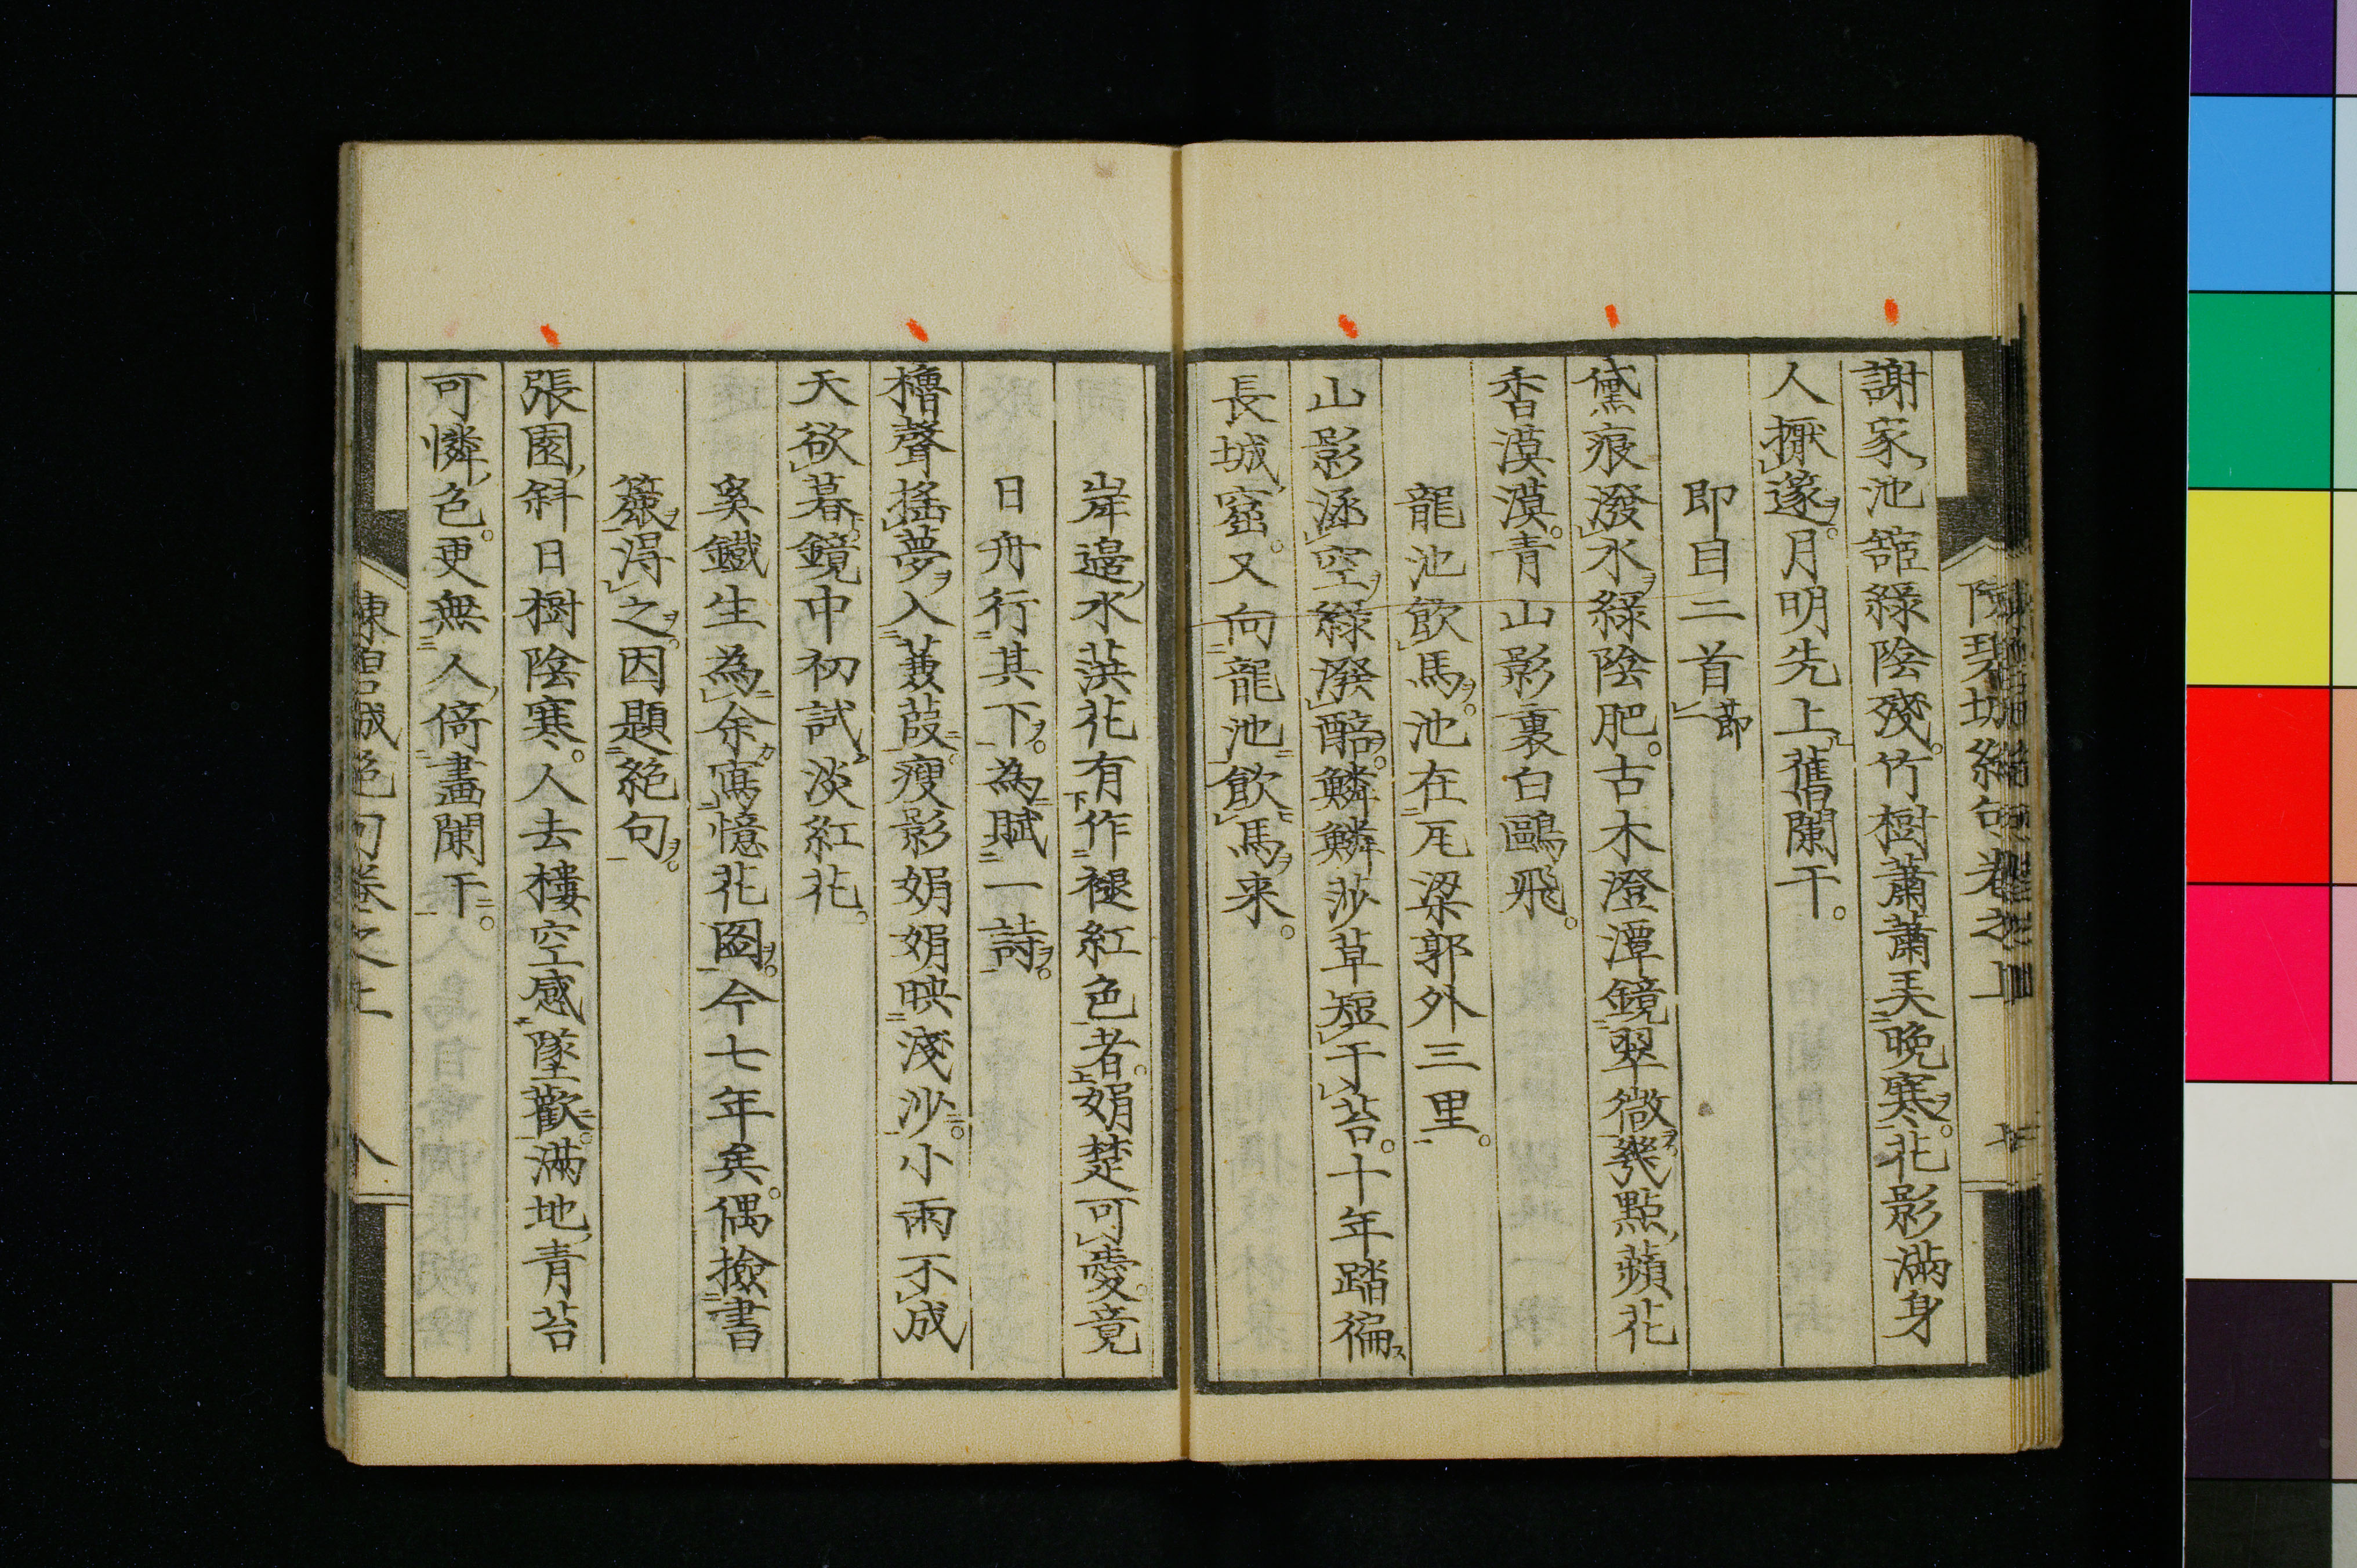 謝家池館緑陰殘竹樹蕭蕭美晩寒花影滿身
人擫篴月明先上舊闌干
即目二首節一
黛痕潑水緑陰肥古木澄潭鏡翠微幾點蘋花
香漠漠青山影裏白鷗飛
龍池飲馬池在瓦梁郭外三里
山影涵空緑潑醅鱗鱗莎草短于苔十年踏徧
長城窟又向龍池飲馬来
岸邉水葓花有作褪紅色者娟楚可愛竟
日舟行其下為賦一詩
櫓聲揺夢入蒹葭瘦影娟娟映淺沙小雨不成
天欲暮鏡中初試淡紅花
奚鐵生為余寫憶花圖今七年矣偶撿書
簏得之因題絶句
張園斜日樹陰寒人去樓空感墜歡滿地青苔
可憐色更無人倚畫闌干